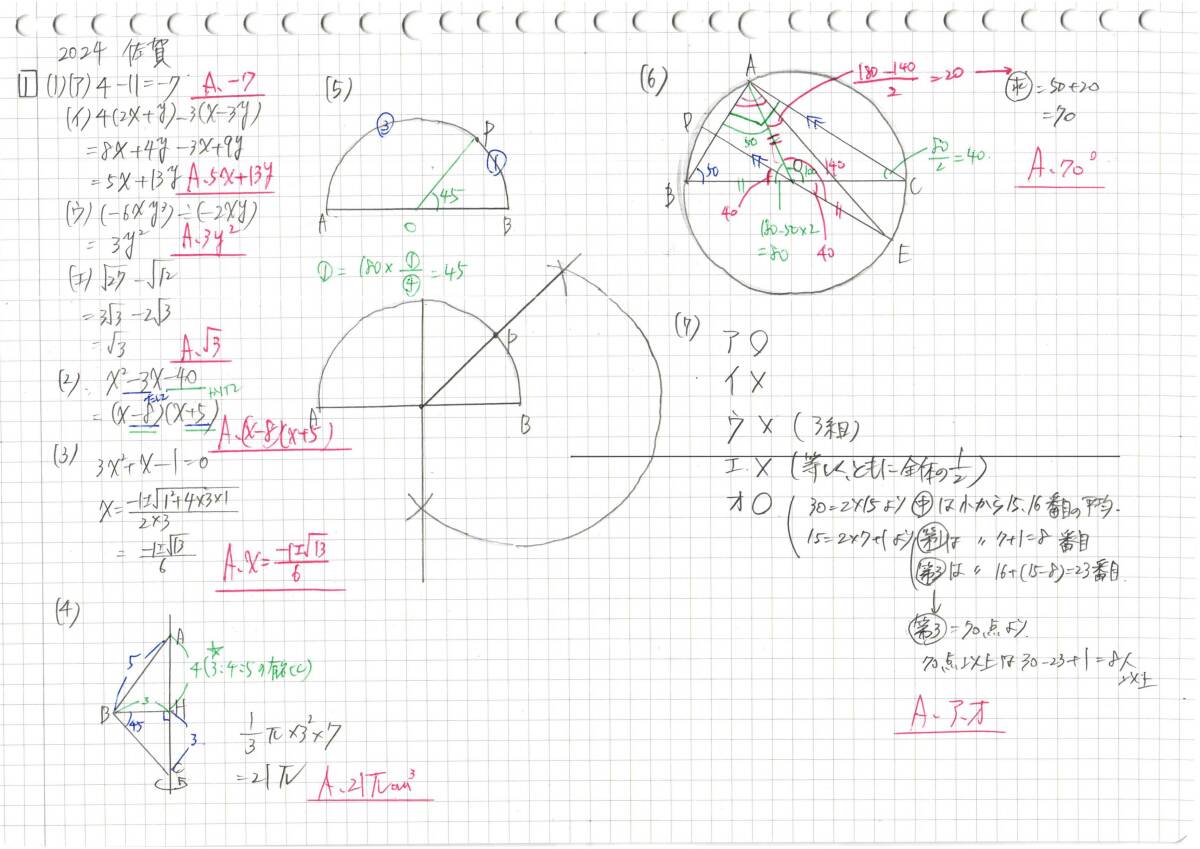 2024 佐賀
1 (1)(ア) 4-11=-7 A.-7
(イ) 4(2x+y)-3(x-3y)
=8x+4y-3x+9y
=5x+13y A.5x+13y
(ウ) (-6xy³)÷(-2xy)
= 3y² A.3y²
(エ) √27-√12
=3√3-2√3
=√3 A.√3
(2) x²-3x-40
=(x-8)(x+5)
A.(x-8)(x+5)
(3)
3x²+x-1=0
x=-1±√1²+4×3×1/2×3
=-1±√13/6
A.x=-1±√13/6
(4)
A
5
☆
4(3:4:5の有名△)
3
B
H
45
3
C
1/3π×3²×7
=21π A.21πcm³
(5)
③
P
①
45
A
O
B
①=180×①/④=45
P
A
B
(6)
A
180-140/2=20
㋱=50+20
=70
A.70°
D
50
50
B
O
100
140
C
80/2=40
40
180-50×2
=80
40
E
(7)
ア ○
イ ×
ウ × (3組)
エ × (等しく、ともに全体の1/2)
オ ○
30=2×15より 中は小から15、16番目の平均.
15=2×7+1より 第1は 〃 7+1=8 番目
第3は 〃 16+(15-8)=23番目.
↓
第3=70点より
70点以上は30-23+1=8人
以上
A.ア、オ